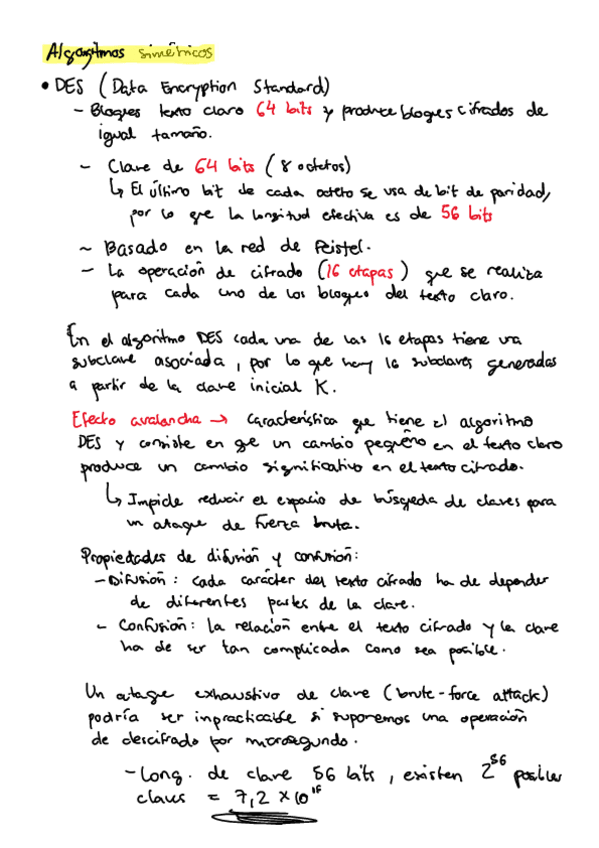 Algoritmos simétricos
• DES (Data Encryption Standard)
- Bloques texto claro 64 bits y produce bloques cifrados de
igual tamaño.
- Clave de 64 bits (8 octetos)
↳ El último bit de cada octeto se usa de bit de paridad,
por lo que la longitud efectiva es de 56 bits
~ Basado en la red de Feistel.
- La operación de cifrado (16 etapas) que se realiza
para cada uno de los bloques del texto claro.
En el algoritmo DES cada una de las 16 etapas tiene una
subclave asociada, por lo que hay 16 subclaves generadas
a partir de la clave inicial K.
Efecto avalancha → característica que tiene el algoritmo
DES y consiste en que un cambio pequeño en el texto claro
produce un cambio significativo en el texto cifrado.
↳ Impide reducir el espacio de búsqueda de claves para
un ataque de fuerza bruta.
Propiedades de difusión y confusión:
- Difusión: cada carácter del texto cifrado ha de depender
de diferentes partes de la clave.
- Confusión: la relación entre el texto cifrado y la clave
ha de ser tan complicada como sea posible.
Un ataque exhaustivo de clave (brute-force attack)
podría ser impracticable si suponemos una operación
de descifrado por microsegundo.
- Long. de clave 56 bits, existen 2⁵⁶ posibles
claves = 7,2 × 10¹⁶